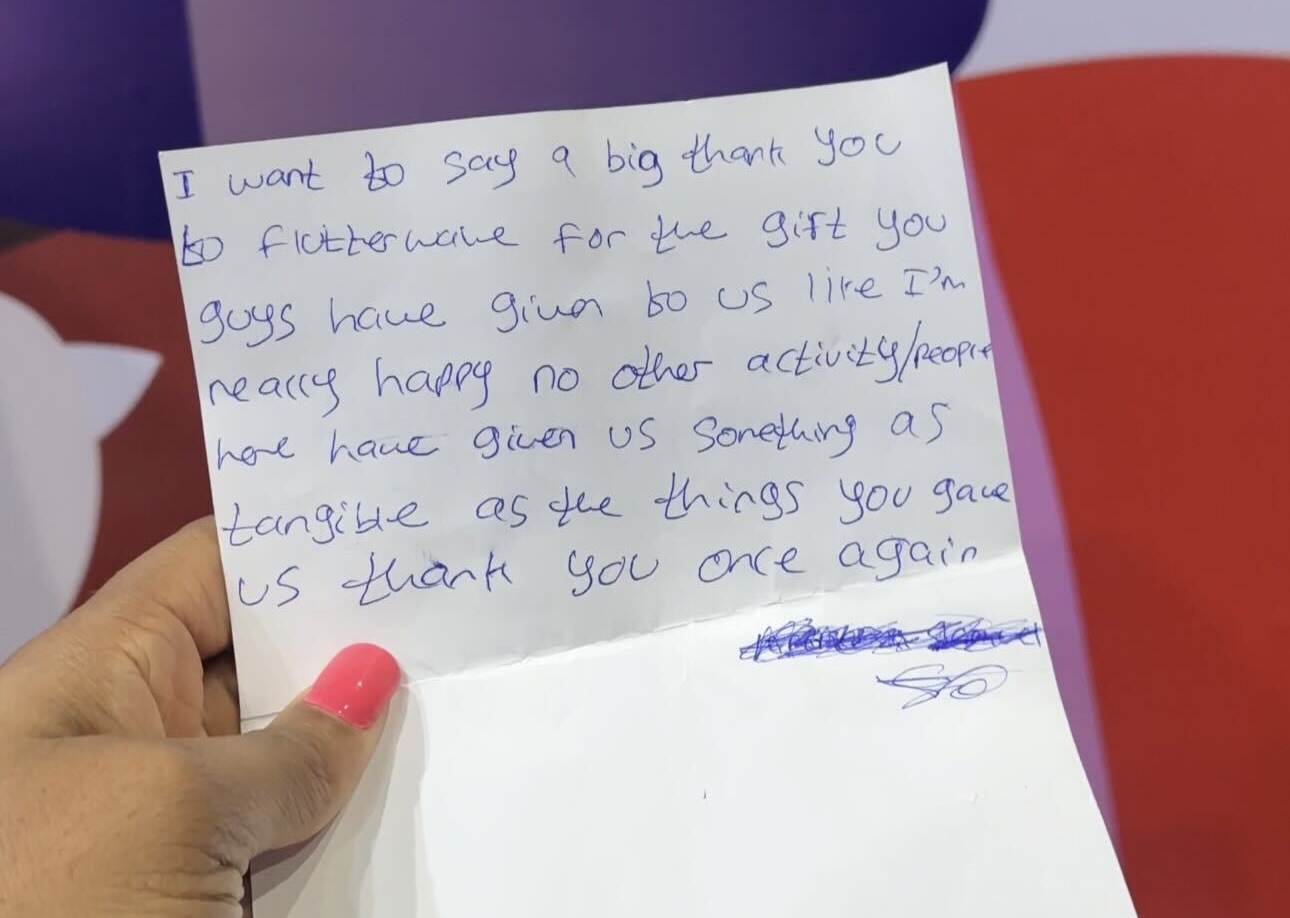 I want to say a big thank you
to flutterwave for the gift you
guys have given to us like I'm
really happy no other activity/people
here have given us something as
tangible as the things you gave
us thank you once again